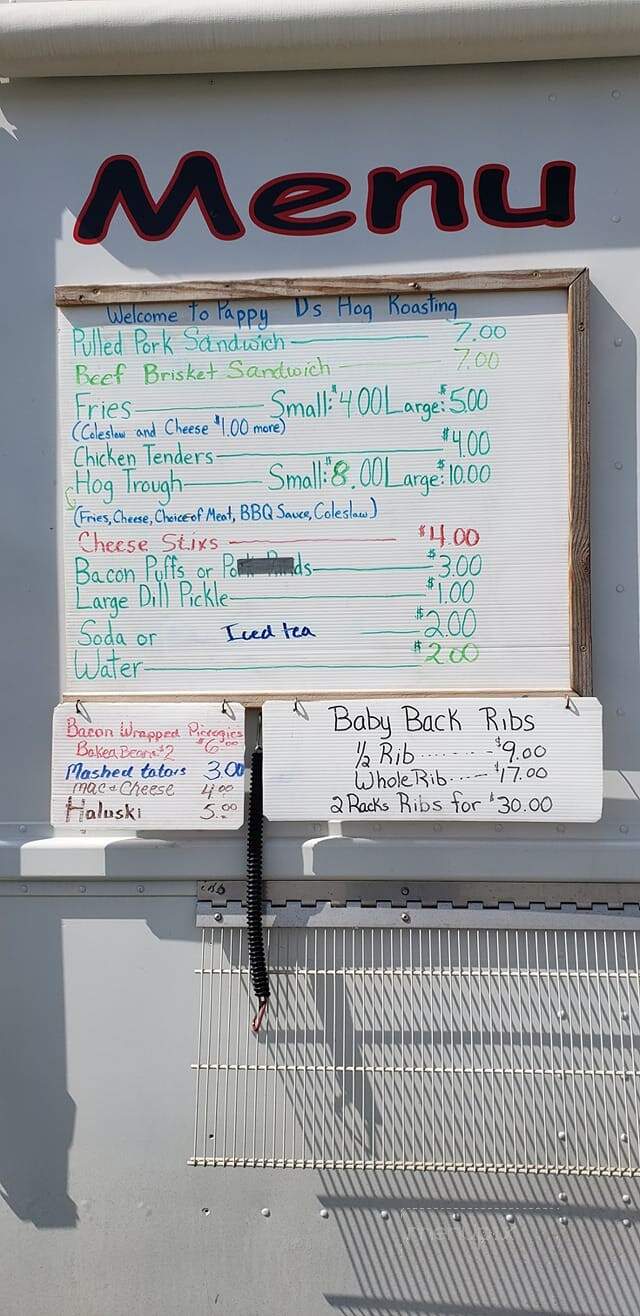 Menu
Welcome to Pappy Ds Hog Roasting
Pulled Pork Sandwich 7.00
Beef Brisket Sandwich 7.00
Fries Small: $4.00 Large: $5.00
(Coleslaw and Cheese $1.00 more)
Chicken Tenders $4.00
Hog Trough Small: $8.00 Large: $10.00
(Fries, Cheese, Choice of Meat, BBQ Sauce, Coleslaw)
Cheese Stixs $4.00
Bacon Puffs or $3.00
Large Dill Pickle $1.00
Soda or Iced tea $2.00
Water $2.00
Bacon Wrapped Pierogies
$6.00
Baked Beans $2
Mashed tators 3.00
mac & Cheese 4.00
Haluski 5.00
Baby Back Ribs
1/2 Rib ------- $9.00
Whole Rib ---- $17.00
2 Racks Ribs for $30.00